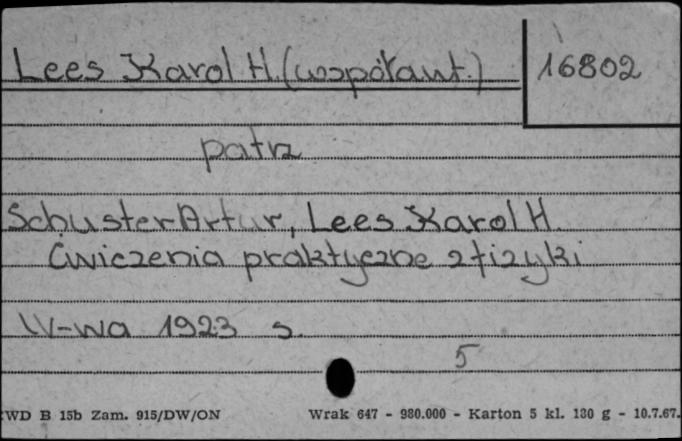 Lees Karol H. (współaut.)
16802
patrz
Schuster Artur, Lees Karol H.
Ćwiczenia praktyczne z fizyki
W-wa 1923 s.
5
WD B 15b Zam. 915/DW/ON Wrak 647 - 980.000 - Karton 5 kl. 180 g - 10.7.67.